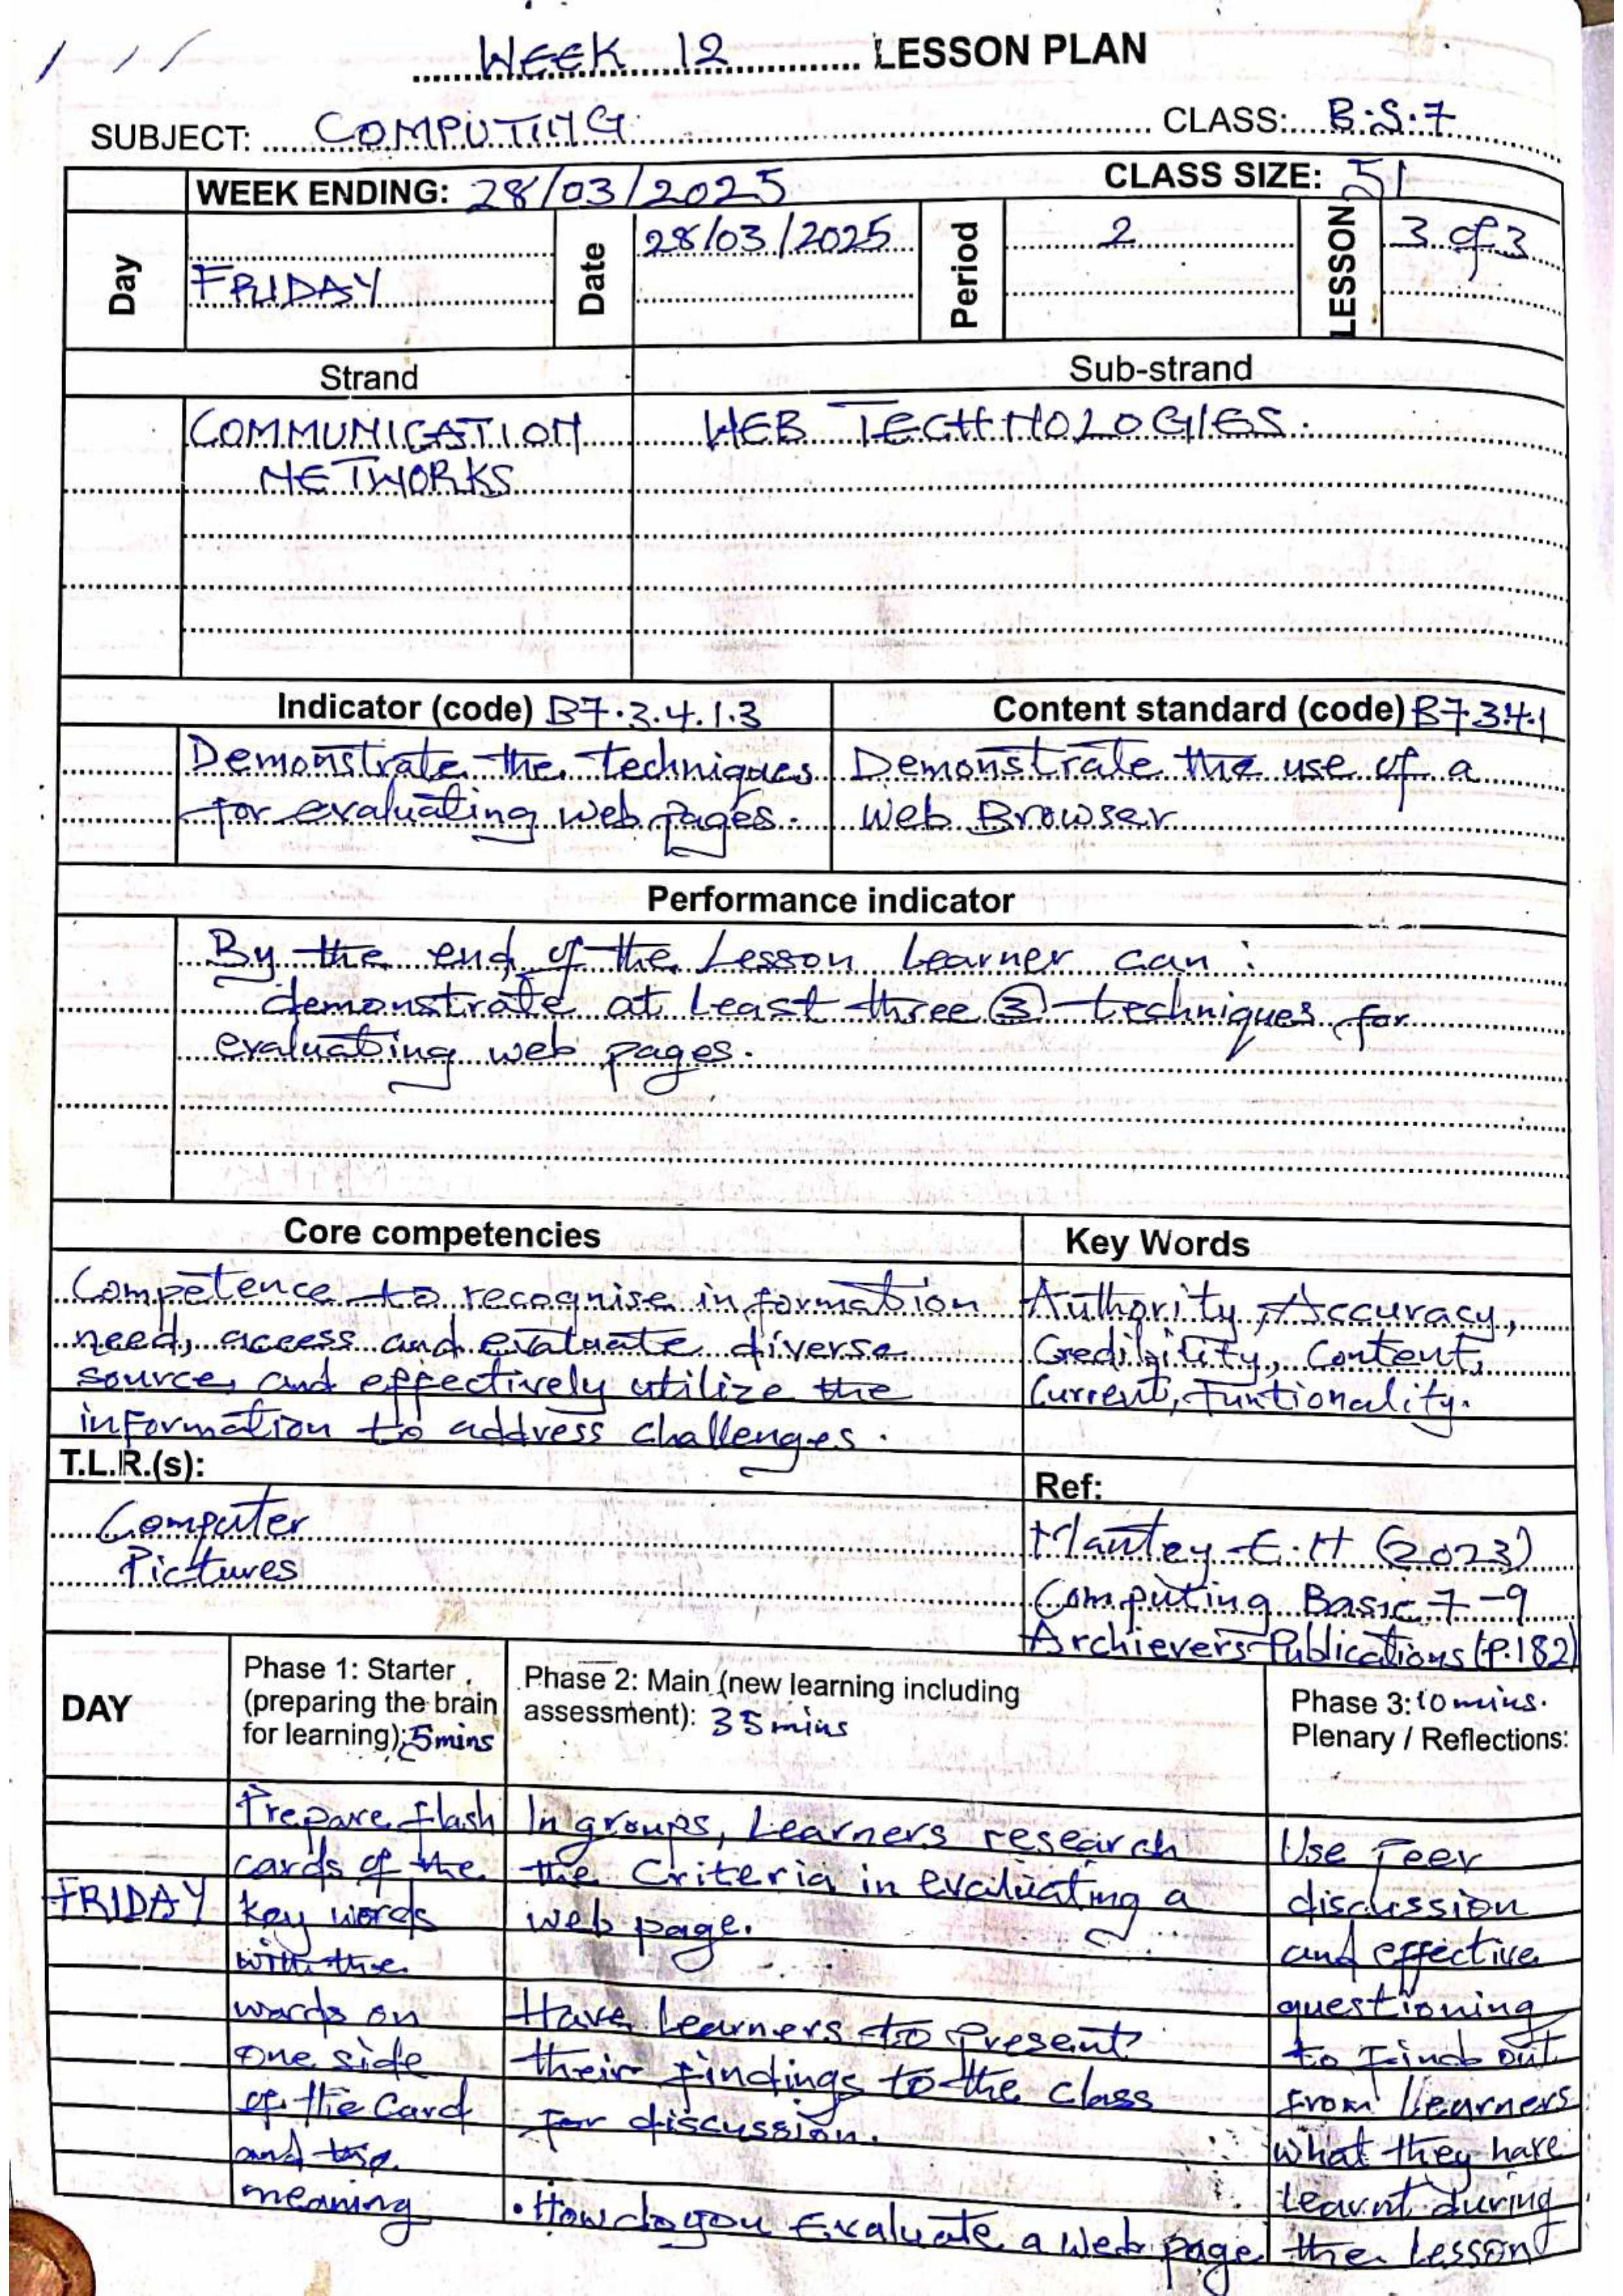 WEEK 12 LESSON PLAN
SUBJECT: COMPUTING CLASS: B.S.7
WEEK ENDING: 28/03/2025 CLASS SIZE: 51
Day FRIDAY Date 28/03/2025 Period 2 LESSON 3 of 3
Strand Sub-strand
COMMUNICATION WEB TECHNOLOGIES.
NETWORKS
Indicator (code) B7.3.4.1.3 Content standard (code) B7.3.4.1
Demonstrate the techniques
for evaluating web pages.
Demonstrate the use of a
Web Browser
Performance indicator
By the end of the Lesson Learner can :
demonstrate at Least three (3) techniques for
evaluating web pages.
Core competencies
Competence to recognise information
need, access and evaluate diverse
source, and effectively utilize the
information to address challenges.
Key Words
Authority, Accuracy,
Credibility, Content,
Current, Funtionality.
T.L.R.(s):
Computer
Pictures
Ref:
Mantey E.H (2023)
Computing Basic 7-9
Archievers Publications (P.182)
DAY
FRIDAY
Phase 1: Starter
(preparing the brain
for learning): 5mins
Prepare flash
cards of the
key words
with the
words on
one side
of the Card
and the
meaning
Phase 2: Main (new learning including
assessment): 35 mins
In groups, Learners research
the Criteria in evaluating a
web page.
Have Learners to Present
their findings to the class
for discussion.
• How do you Evaluate a Web page
Phase 3: 10 mins.
Plenary / Reflections:
Use Peer
discussion
and effective
questioning
to Find out
from learners
what they have
Learnt during
the Lesson